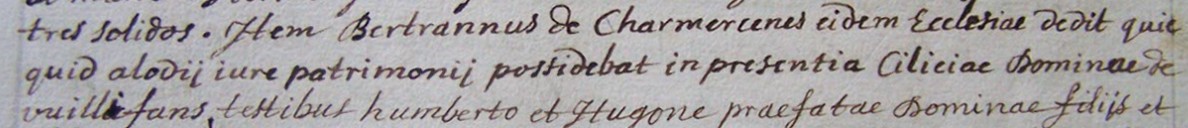 tres solidos. Item Bertrannus de Charmercenes eidem Ecclesiae dedit quic
quid alodij iure patrimonij possidebat in presentia Ciliciae Dominae de
vuillifans, testibus humberto et Hugone praefatae Dominae filijs et